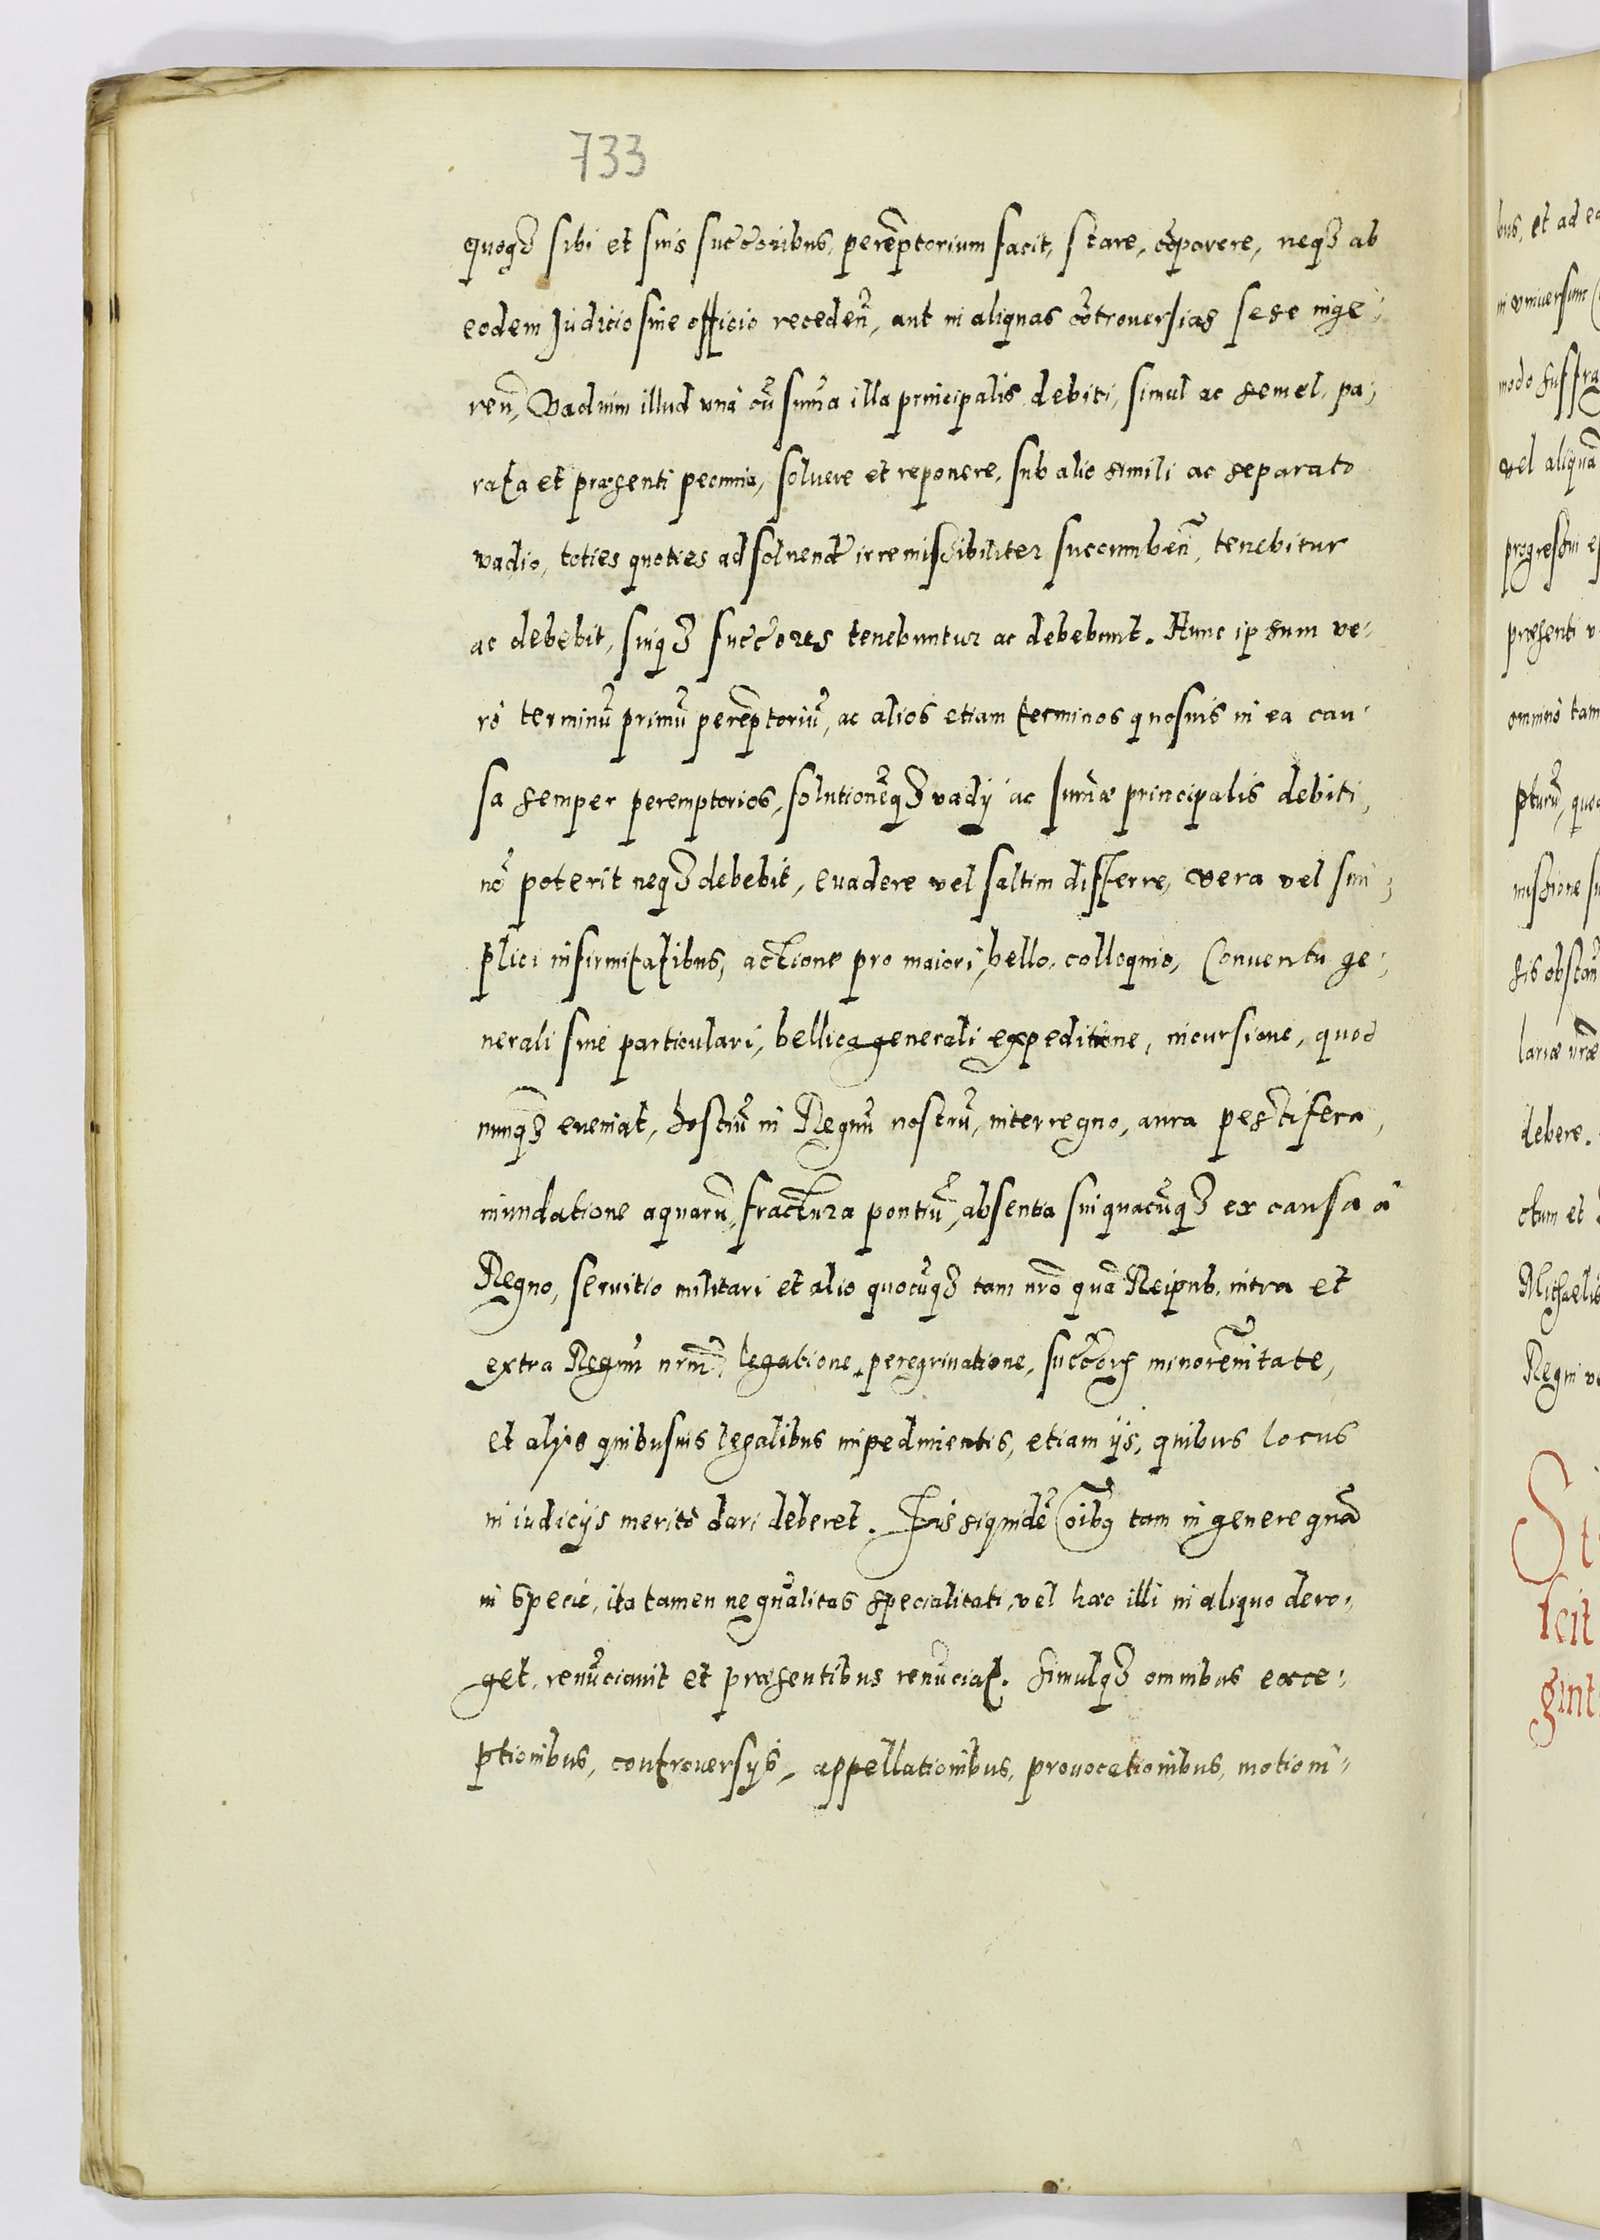 733
quoqȝ sibi et suis succ̃oribus, perẽptorium facit, stare, cõparere, neqȝ ab
eodem Judicio sine officio recedeñ, aut in aliquas cõtroversias sese inge-
reñ, Vadium illud unà cũ sum̃a illa principalis debiti, simul ac semel, pa-
rata et præsenti pecunia, soluere et reponere, sub alio simili ac separato
vadio, toties quoties ad soluend̃ irremissibiliter succumbeñ, tenebitur
ac debebit, suiqȝ succ̃ores tenebuntur ac debebunt. Hunc ipsum ve-
rò terminũ primũ perẽptoriũ, ac alios etiam terminos quosuis in ea cau-
sa semper peremptorios, solutionẽqȝ vadij ac sum̃æ principalis debiti,
nõ poterit neqȝ debebit, euadere vel saltim differre, vera vel sim-
plici infirmitatibus, actione pro maiori, bello, colloquio, Conuentu ge-
nerali siue particulari, bellica generali expeditione, incursione, quod
nunqȝ eueniat, hostiũ in Regnũ nostrũ, interregno, aura pestifera,
inundatione aquarũ, fractura pontiũ, absentia sui quacũqȝ ex causa à
Regno, seruitio militari et alio quocũqȝ tam nr̃o quã Reipub. intra et
extra Regnũ nr̃m̃, legatione, peregrinatione, succ̃orũ minorẽnitate,
et alijs quibusuis legalibus impedimentis, etiam ijs, quibus locus
in iudicijs meritò dari deberet. His siquidẽ oĩbꝰ tam in genere quã
in specie, ita tamen ne gñalitas specialitati, vel hæc illi in aliquo dero-
get, renũciauit et præsentibus renũciat. Simulqȝ omnibus exce-
ptionibus, controuersijs, appellationibus, prouocationibus, motioni-
bus, et ad ea
in vniversum
modo suffra
vel aliquã
progressui
præsenti
omninò tam
pturũ, quod
missione
sis obstañ
lariæ nr̃æ
debere.
ctum et
Michaelis
Regni
Si
scit
gint